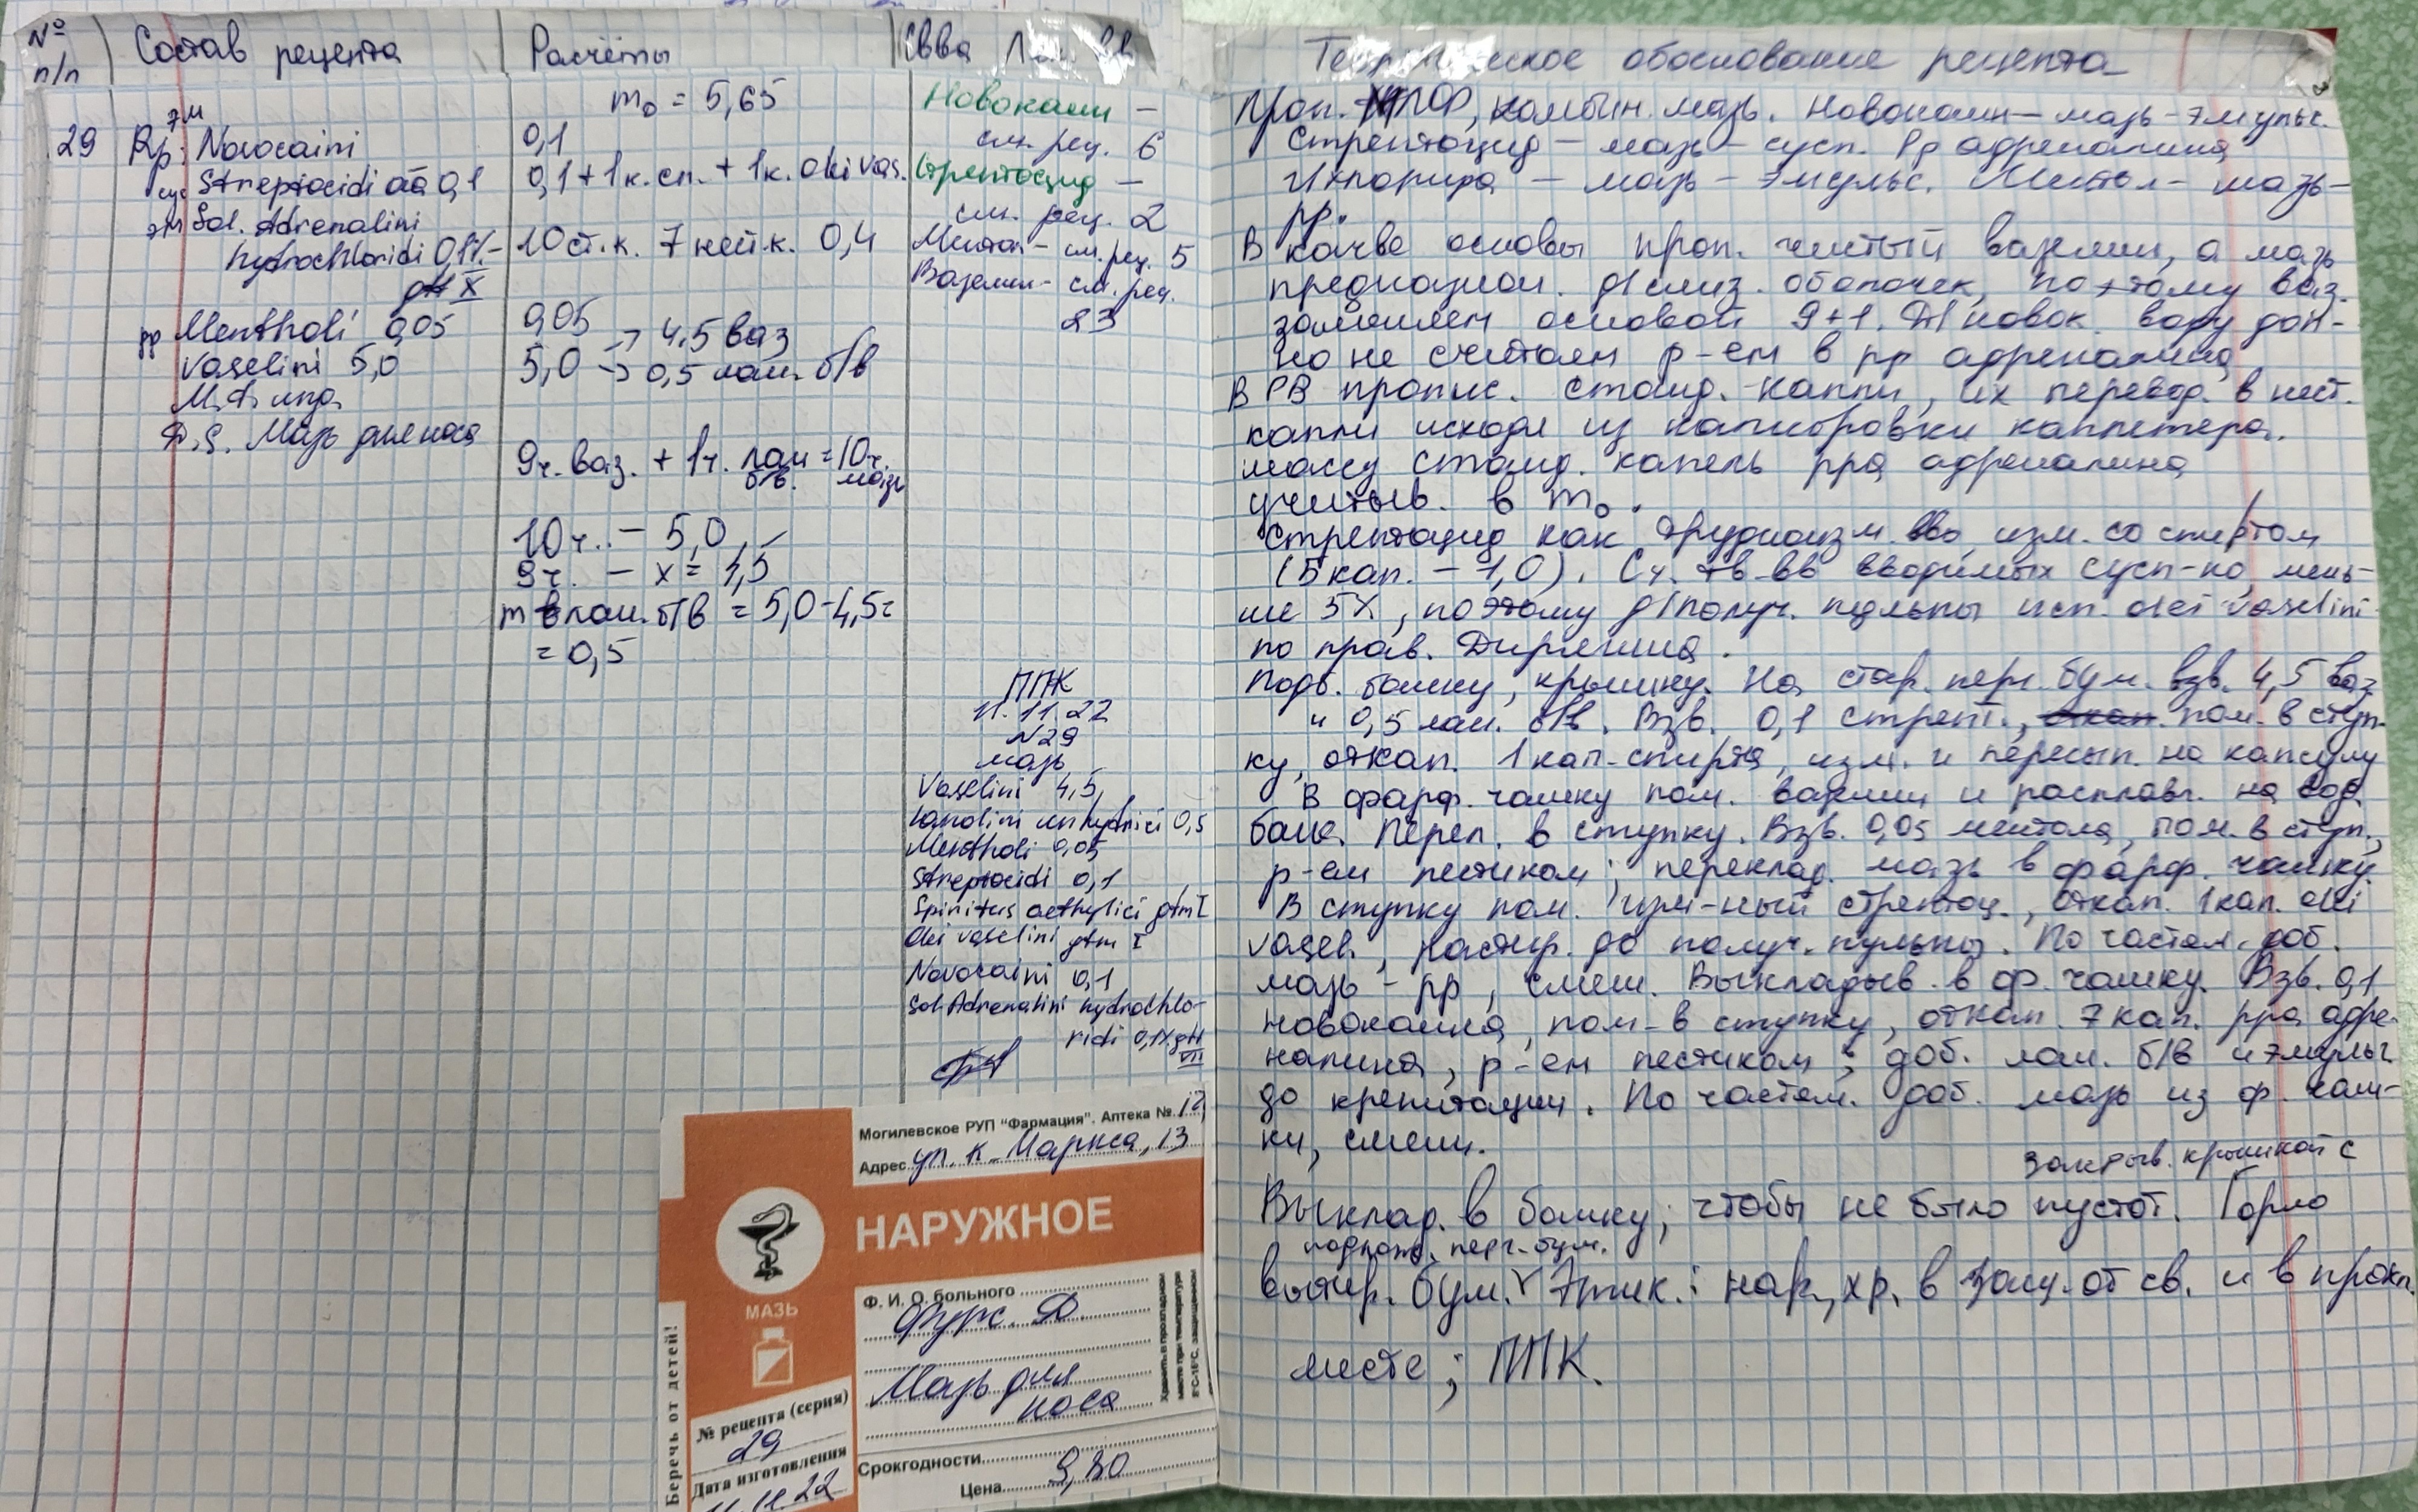 № п/п
Состав рецепта
Расчёты
Св-ва
Теоретическое обоснование рецепта
29
эм
Rp: Novocaini
сус Streptocidi āā 0,1
эм Sol. Adrenalini
hydrochloridi 0,1% -
gtt X
рр Mentholi 0,05
Vaselini 5,0
M.f. ung.
D.S. Мазь для носа
m₀ = 5,65
0,1
0,1 + 1 к. сп. + 1 к. olei vas.
10 ст. к. 7 нест. к. 0,4
0,05
5,0 → 4,5 ваз
→ 0,5 лан. б/в
9ч. ваз. + 1ч. лан б/в. = 10ч. мазь
10ч. – 5,0
9ч. – x = 4,5
m лан. б/в = 5,0 - 4,5 =
= 0,5
Новокаин –
см. рец. 6
Стрептоцид –
см. рец. 2
Ментол - см. рец. 5
Вазелин - см. рец.
23
ППК
11.11.22
N29
мазь
Vaselini 4,5
Lanolini anhydrici 0,5
Mentholi 0,05
Streptocidi 0,1
Spiritus aethylici gttm I
Olei vaselini gttm I
Novocaini 0,1
Sol. Adrenalini hydrochlo-
ridi 0,1% gtt
VII
Могилевское РУП "Фармация". Аптека № 12
Адрес ул. К. Маркса, 13
НАРУЖНОЕ
МАЗЬ
Ф. И. О. больного
Фурс. Д.
Мазь для
носа
№ рецепта (серия)
29
Дата изготовления
11.11.22
Срок годности
Цена 9,80
Беречь от детей!
Хранить в прохладном
месте при температуре
8°С-15°С, защищенном
Проп. МЛФ, комбин. мазь. Новокаин – мазь - эмульс.
Стрептоцид – мазь – сусп. Рр адреналина
г/хлорида – мазь – эмульс. Ментол - мазь -
рр.
В кач-ве основы проп. чистый вазелин, а мазь
предназнач. д/слиз. оболочек, поэтому ваз.
заменяем основой 9+1. Д/новок. воду доп-
но не считаем р-ем в рр адреналина
В РВ пропис. станд. капли, их перевод. в нест.
капли исходя из калибровки каплемера.
массу станд. капель рра адреналина
учитыв. в m₀.
Стрептоцид как трудноизм. в-во, изм. со спиртом
(5 кап. – 1,0). Сч. тв. вв вводимых сусп-но, мень-
ше 5%, поэтому д/получ. пульпы исп. olei vaselini
по прав. Дерягина.
Подб. банку, крышку. На стар. перг. бум. взв. 4,5 ваз
и 0,5 лан. б/в. Взв. 0,1 стрепт., пом. в ступ-
ку, откап. 1 кап. спирта, изм. и пересып. на капсулу
В фарф. чашку пом. вазелин и расплавл. на вод.
бане. Переп. в ступку. Взв. 0,05 ментола, пом. в ступ.,
р-ем пестиком; переклад. мазь в фарф. чашку.
В ступку пом. изм-ный стрептоц., откап. 1 кап. olei
vasel., растир. до получ. пульпы. По частям доб.
мазь - рр, смеш. Выкладыв. в ф. чашку. Взв. 0,1
новокаина, пом. в ступку, откап. 7 кап. рра адре-
налина, р-ем пестиком; доб. лан. б/в и эмульг.
до крепитации. По частям. доб. мазь из ф. чаш-
ки, смеш.
закрыв. крышкой с
Выклад. в банку, чтобы не было пустот. Горло
подлож. перг. бум.
вытир. бум. Этик.: нар., хр. в защ. от св. и в прохл.
месте; ППК.